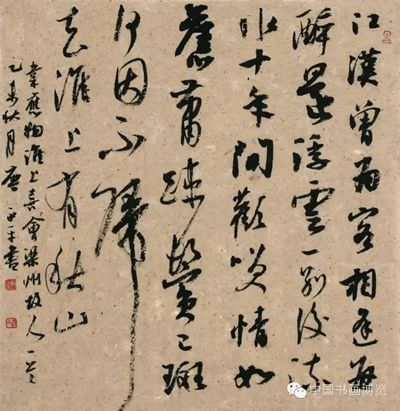 江漢曾為客相逢每
醉還浮雲一別後流
水十年間歡笑情如
舊蕭疏鬢已斑
何因不歸
去淮上有秋山
韋應物淮上喜會梁州故人一首
乙未秋月書
中国书画博览